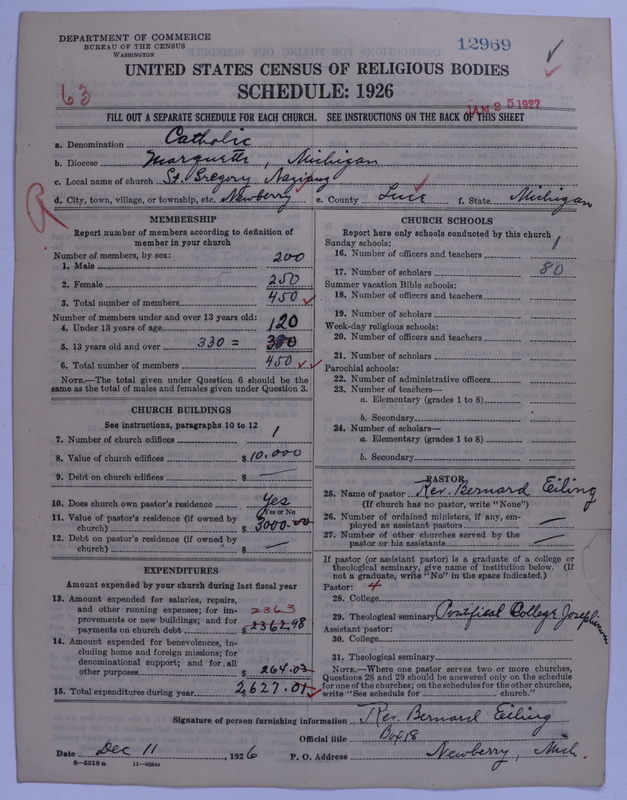 DEPARTMENT OF COMMERCE
BUREAU OF THE CENSUS
WASHINGTON
12969
UNITED STATES CENSUS OF RELIGIOUS BODIES
63
SCHEDULE: 1926
JAN 25 1927
FILL OUT A SEPARATE SCHEDULE FOR EACH CHURCH. SEE INSTRUCTIONS ON THE BACK OF THIS SHEET
a. Denomination Catholic
b. Diocese Marquette, Michigan
c. Local name of church St. Gregory
d. City, town, village, or township, etc. Newberry e. County Luce f. State Michigan
MEMBERSHIP
Report number of members according to definition of
member in your church
Number of members, by sex:
1. Male 200
2. Female 250
3. Total number of members 450
Number of members under and over 13 years old:
4. Under 13 years of age 120
5. 13 years old and over 330 =
6. Total number of members 450
NOTE.—The total given under Question 6 should be the
same as the total of males and females given under Question 3.
CHURCH BUILDINGS
See instructions, paragraphs 10 to 12
7. Number of church edifices 1
8. Value of church edifices $ 10.000
9. Debt on church edifices $ —
10. Does church own pastor's residence Yes
Yes or No
11. Value of pastor's residence (if owned by
church) $ 3000.00
12. Debt on pastor's residence (if owned by
church) $ —
EXPENDITURES
Amount expended by your church during last fiscal year
13. Amount expended for salaries, repairs,
and other running expenses; for im-
provements or new buildings; and for 2363
payments on church debt $ 2362.98
14. Amount expended for benevolences, in-
cluding home and foreign missions; for
denominational support; and for all
other purposes $ 264.03
15. Total expenditures during year $ 2,627.01
CHURCH SCHOOLS
Report here only schools conducted by this church
Sunday schools:
16. Number of officers and teachers 1
17. Number of scholars 80
Summer vacation Bible schools:
18. Number of officers and teachers
19. Number of scholars
Week-day religious schools:
20. Number of officers and teachers
21. Number of scholars
Parochial schools:
22. Number of administrative officers
23. Number of teachers—
a. Elementary (grades 1 to 8)
b. Secondary
24. Number of scholars—
a. Elementary (grades 1 to 8)
b. Secondary
PASTOR
25. Name of pastor Rev. Bernard Eiling
(If church has no pastor, write "None")
26. Number of ordained ministers, if any, em-
ployed as assistant pastors —
27. Number of other churches served by the
pastor or his assistants —
If pastor (or assistant pastor) is a graduate of a college or
theological seminary, give name of institution below. (If
not a graduate, write "No" in the space indicated.)
Pastor: 4
28. College
29. Theological seminary Pontifical College Josephinum
Assistant pastor:
30. College
31. Theological seminary
NOTE.—Where one pastor serves two or more churches,
Questions 28 and 29 should be answered only on the schedule
for one of the churches; on the schedules for the other churches,
write "See schedule for church."
Signature of person furnishing information Rev. Bernard Eiling
Official title Box 18
Date Dec 11, 1926 P. O. Address Newberry, Mich.
8—5518 a